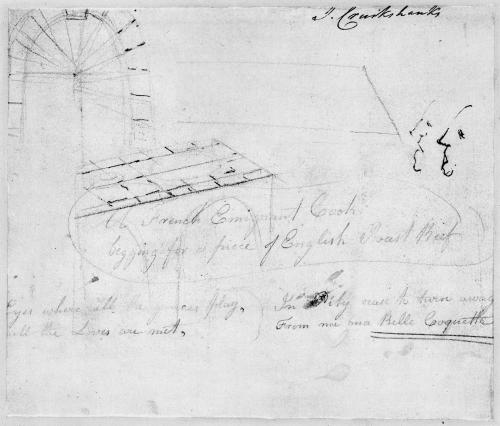 I. Cruikshanks
A French Emigrant Cook
begging for a piece of English Roast Beef
Eyes where all the graces play,
all the Loves are met,
In Pity cease to turn away
From me ma Belle Coquette